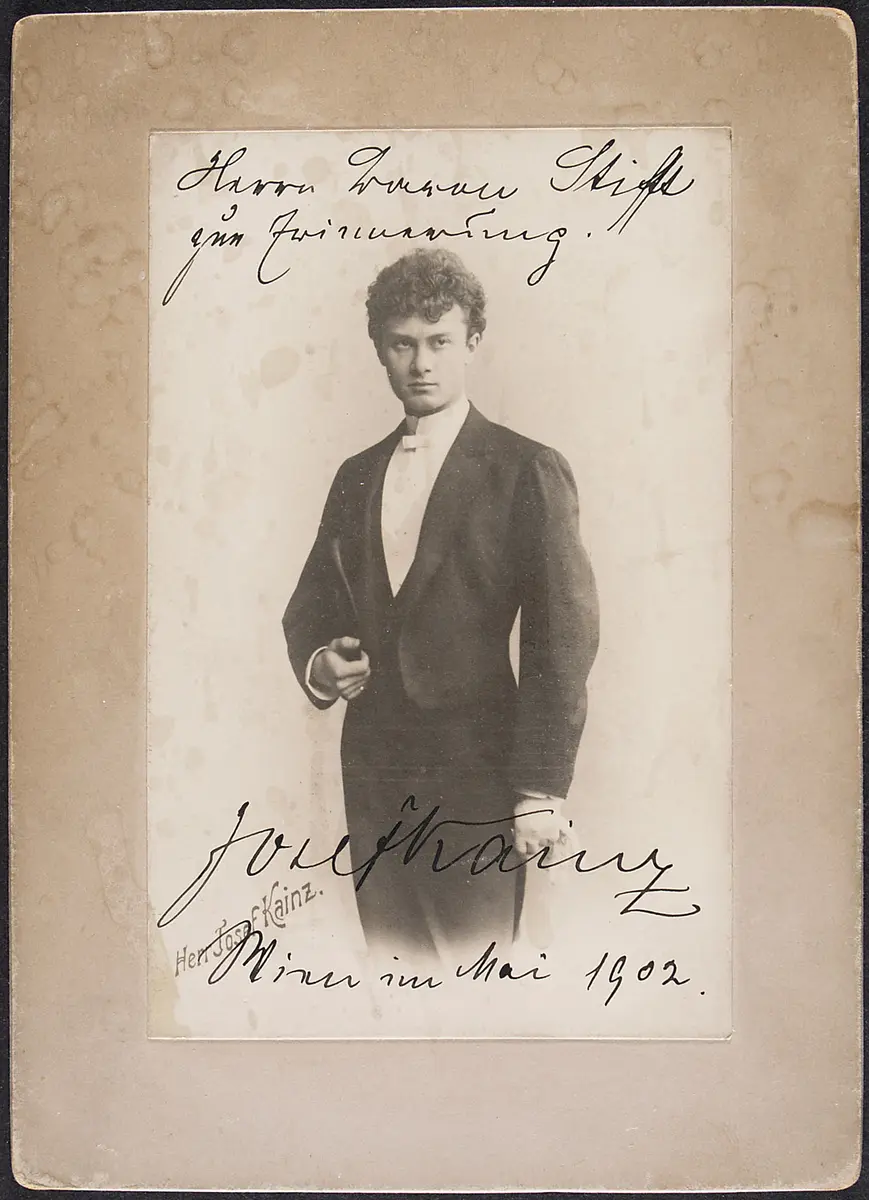 Herrn Baron Stifft
zur Erinnerung.
Josef Kainz
Herr Josef Kainz.
Wien im Mai 1902.